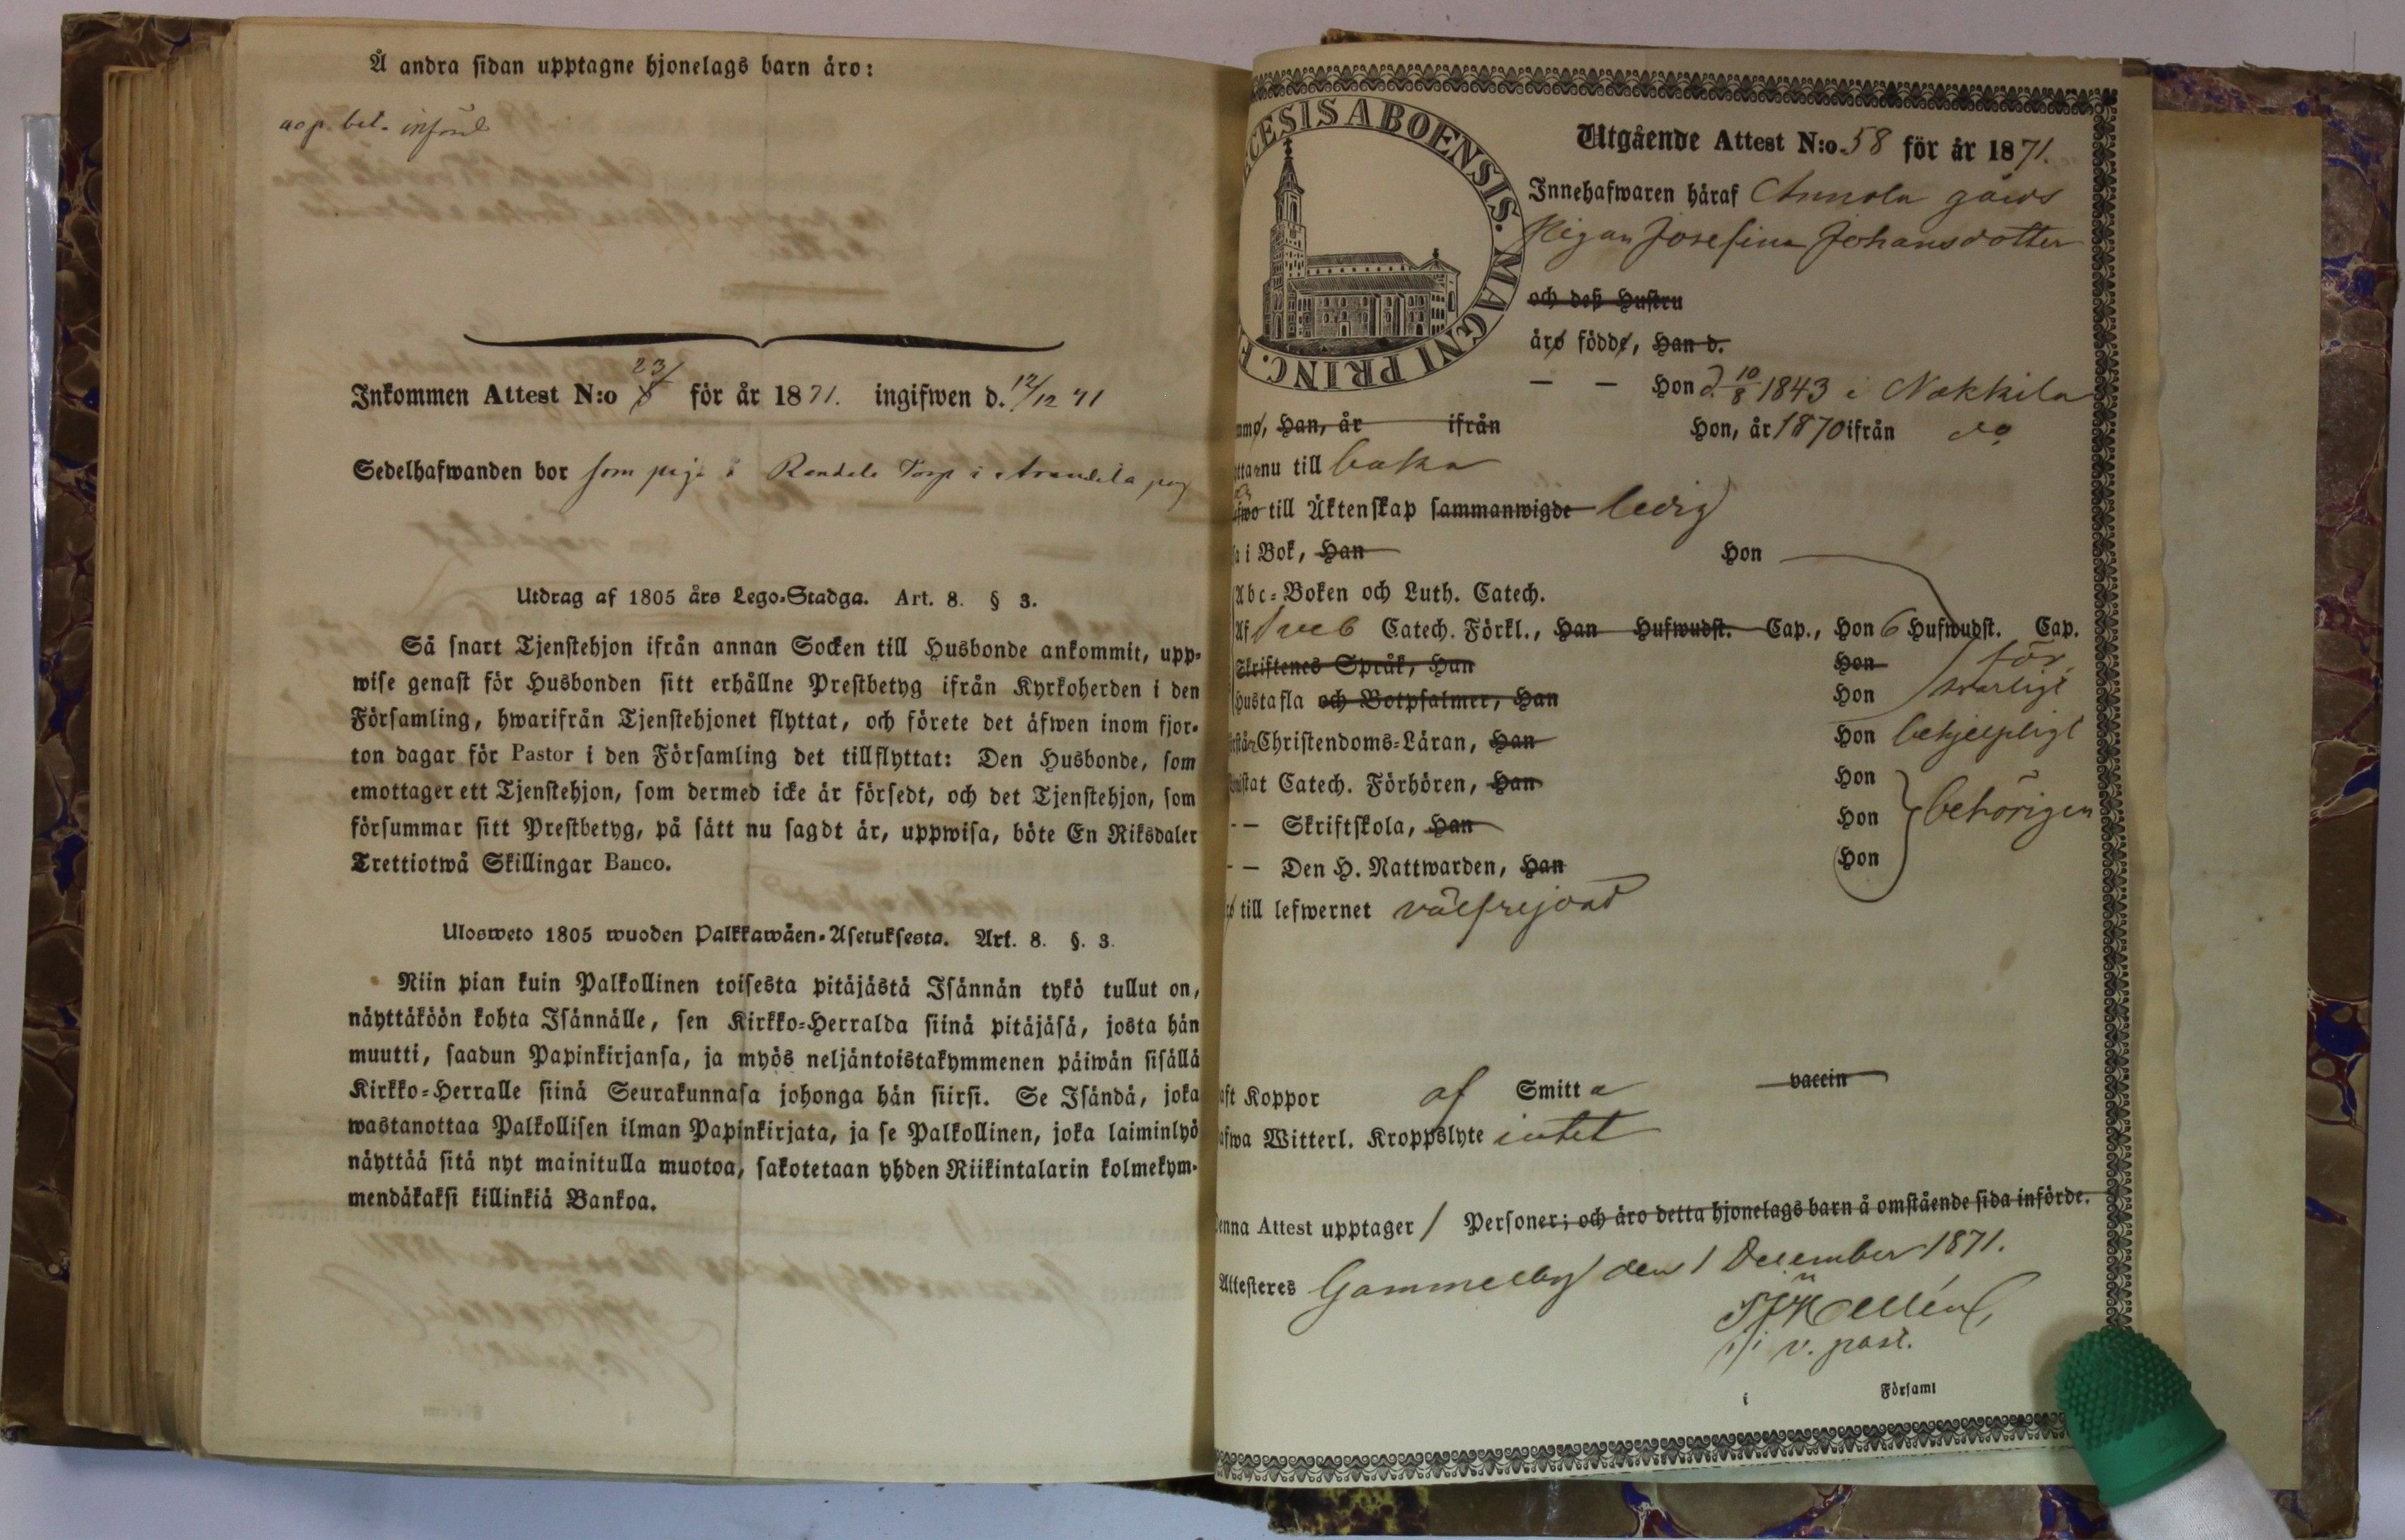 Å andra sidan upptagne hjonelags barn äro:
Inkommen Attest N:o 23/8 för år 1871. ingifwen d. 12/12 71
Sedelhafwanden bor som piga i Torp i
Utdrag af 1805 års Lego-Stadga. Art. 8. § 3.
Så snart Tjenstehjon ifrån annan Socken till Husbonde ankommit, upp-
wise genast för Husbonden sitt erhållne Prestbetyg ifrån Kyrkoherden i den
Församling, hwarifrån Tjenstehjonet flyttat, och förete det äfwen inom fjor-
ton dagar för Pastor i den Församling det tillflyttat: Den Husbonde, som
emottager ett Tjenstehjon, som dermed icke är försedt, och det Tjenstehjon, som
försummar sitt Prestbetyg, på sätt nu sagdt är, uppwisa, böte En Riksdaler
Trettiotwå Skillingar Banco.
Ulosweto 1805 wuoden Palkkawäen-Asetuksesta. Art. 8. §. 3.
Niin pian kuin Palkollinen toisesta pitäjästä Isännän tykö tullut on,
näyttäköön kohta Isännälle, sen Kirkko-Herralda siinä pitäjäsä, josta hän
muutti, saadun Papinkirjansa, ja myös neljäntoistakymmenen päiwän sisällä
Kirkko-Herralle siinä Seurakunnasa johonga hän siirsi. Se Isändä, joka
wastanottaa Palkollisen ilman Papinkirjata, ja se Palkollinen, joka laiminlyö
näyttää sitä nyt mainitulla muotoa, sakotetaan yhden Riikintalarin kolmekym-
mendäkaksi killinkiä Bankoa.
CESIS ABOENSIS. MAGNI PRINC. F
Utgående Attest N:o 58 för år 1871.
Innehafwaren häraf Annola gårds
Pigan Josefina Johansdotter
och deß Hustru
äro födde, Han d.
— — Hon d. 10/8 1843 i Nakkila
mme, Han, år ifrån Hon, år 1870 ifrån do
ttanu till baka
fwo till Äktenskap sammanwigde ledig
a i Bok, Han Hon
Abc-Boken och Luth. Catech.
Af Sveb Catech. Förkl., Han Hufwudst. Cap., Hon 6 Hufwudst. Cap.
Skriftenes Språk, Han Hon för
Hustafla och Botpsalmer, Han Hon swarligt
Christendoms-Läran, Han Hon behjelpligt
stat Catech. Förhören, Han Hon
-- Skriftskola, Han Hon behörigen
-- Den H. Nattwarden, Han Hon
till lefwernet välfrejdad
aft Koppor af Smitta vaccin
afwa Witterl. Kroppslyte intet
enna Attest upptager 1 Personer; och äro detta hjonelags barn å omstående sida införde.
Attesteres Gammelby den 1 December 1871.
v. past.
i Församl